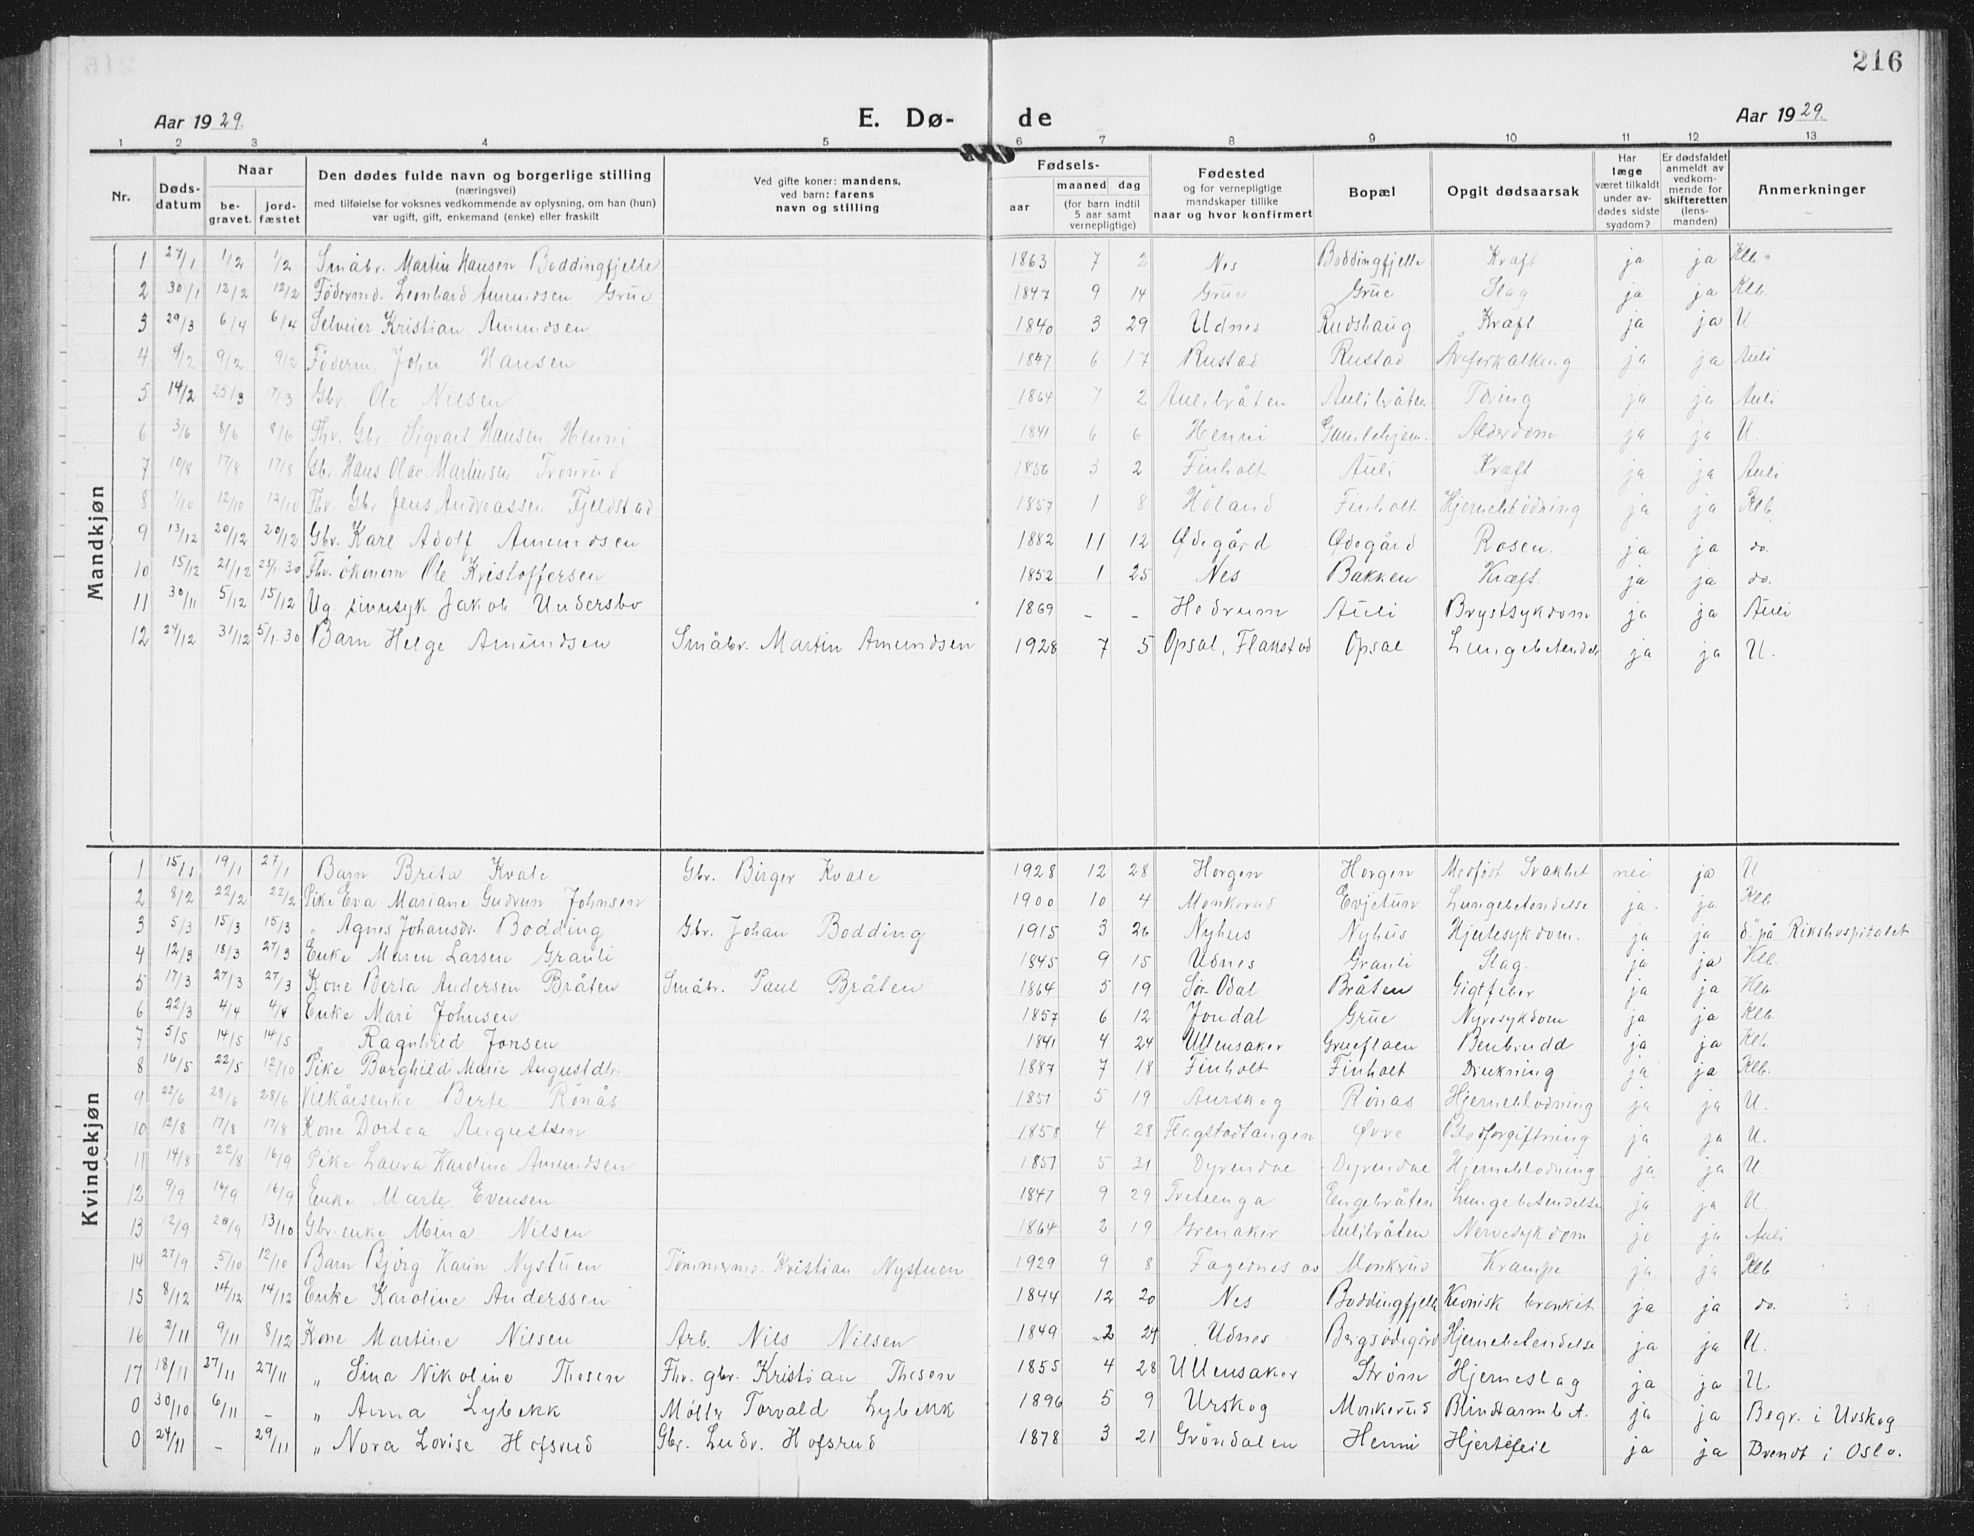 216
Aar 1929. E. Dø- de Aar 1929.
1 2 3 4 5 6 7 8 9 10 11 12 13
Nr. Døds-datum Naar be-gravet. jord-fæstet Den dødes fulde navn og borgerlige stilling (næringsvei) med tilføielse for voksnes vedkommende av oplysning, om han (hun) var ugift, gift, enkemand (enke) eller fraskilt Ved gifte koner: mandens, ved barn: farens navn og stilling Fødsels- aar maaned dag (for barn indtil 5 aar samt vernepligtige) Fødested og for vernepligtige mandskaper tillike naar og hvor konfirmert Bopæl Opgit dødsaarsak Har læge været tilkaldt under av-dødes sidste sygdom? Er dødsfaldet anmeldt av vedkom-mende for skifteretten (lens-manden) Anmerkninger
Mandkjøn
1 27/1 1/2 1/2 Småbr. Martin Hansen Boddingfjelle 1863 7 2 Nes Boddingfjelle Kræft ja ja Klb.
2 30/1 12/2 12/2 Födermd. Leonhard Amundsen Grue 1847 9 14 Grue Grue Slag. ja ja Klb.
3 29/3 6/4 6/4 Selveier Kristian Amundsen 1840 3 29 Udnes Rudshaug Kræft ja ja U
4 9/2 9/2 Föderm John Hansen 1847 6 17 Rustad Rustad Åreforkalkning ja ja Auli
5 14/2 25/3 17/3 Gbr. Ole Nilsen 1864 7 2 Aulibråten Aulibråten Tæring ja ja Auli
6 3/6 8/6 8/6 Fhv. Gbr Sigvart Hansen Henni 1841 6 6 Henni Gamlehjem. Alderdom ja ja U.
7 10/8 17/8 17/8 Gbr. Hans Olav Martinsen Tronrud 1856 3 2 Finholt Auli Kræft ja ja Auli
8 1/10 12/10 12/10 Fhv. Gbr Jens Andreassen Fjeldstad 1857 1 8 Höland Finholt Hjerneblödning ja ja Klb.
9 13/12 20/12 20/12 Gbr. Karl Adolf Amundsen 1882 11 12 Ødegård Ødegård Rosen. ja ja do.
10 15/12 21/12 24/1.30 Fhv. ökonom Ole Kristoffersen 1852 1 25 Nes Bakken Kræft. ja ja do.
11 30/11 5/12 15/12 Ug sinnsyk Jakob Undersbo 1869 - - Hedrum Auli Brystsykdom ja ja Auli
12 24/12 31/12 5/1.30 Barn Helge Amundsen Småbr. Martin Amundsen 1928 7 5 Opsal, Flakstad Opsal Lungebetændels ja ja U.
Kvindekjøn
1 15/1 19/1 27/1 Barn Brita Kvale Gbr. Birger Kvale 1928 12 28 Horgen Horgen Medfödt Svakhet nei ja U
2 8/2 22/2 22/2 Pike Eva Mariane Gudrun Johnsen 1900 10 4 Monkerud Evjetun Lungebetendelse ja. ja Klb.
3 5/3 15/3 15/3 „ Agnes Johansdr. Bodding Gbr. Johan Bodding 1915 3 26 Nyhus Nyhus Hjertesykdom. ja ja d. på Rikshospitalet
4 12/3 18/3 27/3 Enke Maren Larsen Grauli 1845 9 15 Udnes Grauli Slag. ja ja Klb.
5 17/3 27/3 27/3 Kone Berta Andersen Bråten Småbr. Paul Bråten 1864 5 19 Sör-Odal Bråten Gigtfeber ja ja Klb.
6 22/3 4/4 4/4 Enke Mari Johnsen 1857 6 12 Jondal Grue Nyresykdom ja ja Klb.
7 5/5 14/5 14/5 „ Ragnhild Jonsen 1841 4 24 Ullensaker Grueflaen Benbrudd ja ja Klb.
8 16/5 22/5 12/10 Pike Borghild Marie Augustdtr. 1887 7 18 Finholt Finholt Drukning ja ja Klb.
9 22/6 28/6 28/6 Vilkårsenke Berte Rönås 1851 5 19 Aurskog Rönas Hjerneblödning ja ja U.
10 12/8 17/8 17/8 Kone Dortea Augustsen 1858 4 28 Flagstadtangen Øvre Blodforgiftning ja ja U.
11 14/8 22/8 16/9 Pike Laura Karoline Amundsen 1851 5 31 Dyrendal Dyrendal Hjerneblodning ja ja U.
12 9/9 14/9 16/9 Enke Marte Evensen 1847 9 29 Treteenga Engebråten Lungebetendelse ja ja U.
13 12/9 20/9 13/10 Gbr.enke Mina Nilsen 1864 2 19 Grenaker Aulibråten Nervesykdom ja ja Auli
14 27/9 5/10 12/10 Barn Björg Karin Nystuen Tömmermd. Kristian Nystuen 1929 9 8 Fagernes as Monkrud Krampe ja ja Klb
15 8/12 14/12 14/12 Enke Karoline Anderssen 1844 12 20 Nes Boddingfjelle Kronisk bronkit ja ja do.
16 2/11 9/11 8/12 Kone Martine Nilsen Arb. Nils Nilsen 1849 2 24 Udnes Bergsödegård Hjernebetendelse ja ja U.
17 18/11 27/11 27/11 „ Lina Nikoline Thesen Fhv. gbr. Kristian Thesen 1855 4 28 Ullensaker Strøm Hjerneslag ja ja U.
0 30/10 6/11 - „ Anna Lybekk Møller Torvald Lybekk 1896 5 9 Urskog Monkerud Blindtarmbet. ja ja Begr. i Urskog
0 24/11 - 29/11 „ Nora Lovise Hofsrud Gbr. Ludv. Hofsrud 1878 3 21 Gröndalen Henni Hjertefeil ja ja Brendt i Oslo.